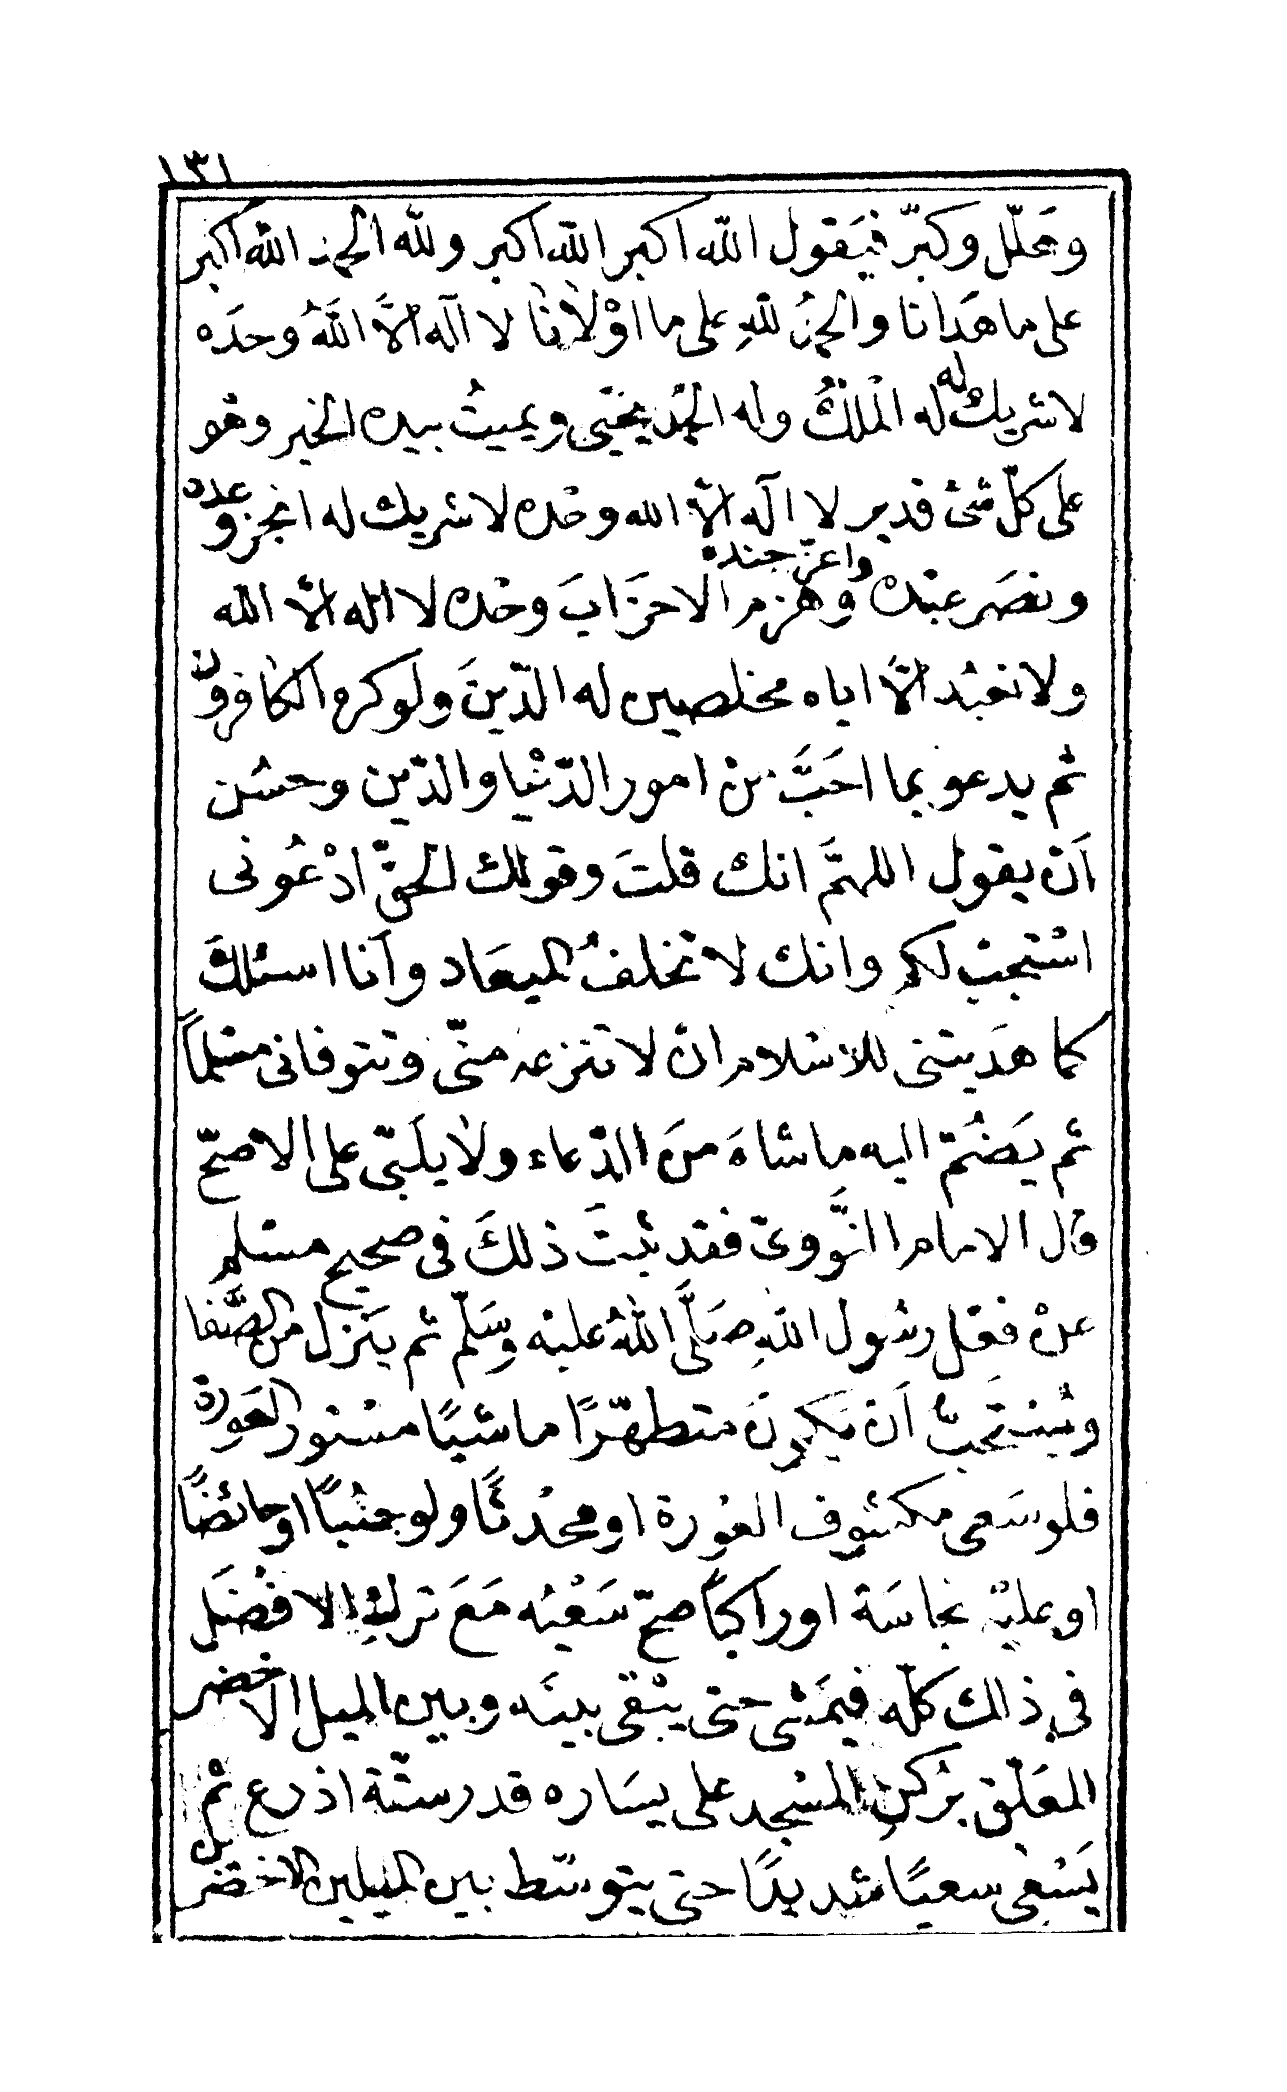 ١٣١
وهَلّل وكبّر فيَقول الله اكبر الله اكبر ولله الحمد الله اكبر
على ما هَدانا والحمدُ للهِ على ما اوْلانا لا اله الاَّ اللهُ وحدَه
لا شريكَ له له المْلكُ وله الحمْدُ يحْيى ويميتُ بيده الخير وهو
على كلّ شئ قدير لا اله الاّ الله وحْده لا شريك له انجز وعده
ونصَر عبْده واعزّ جنده وهزم الاحزَابَ وحْده لا اله الاّ الله
ولا نعبُد الاَّ اياه مخلصين له الدّينَ ولو كره الكافرونَ
ثم يدعو بما احَبَّ منْ امور الدّنْيا والدّين وحسُن
اَنْ يقول اللهمَّ انك قلتَ وقولك الحقّ ادْعُونى
اسْتجبْ لكم وانك لا تخلفُ الميعَاد وانا اسئلكَ
كما هدَيتنى للاسْلام انْ لا تنزعه منّى وتتوفانى مسْلماً
ثم يَضُمّ اليه ما شاءَ منَ الدّعاء ولا يلَبّى على الاصحّ
قال الامام النَّووىّ فقد ثبتَ ذلكَ فى صحيح مسْلم
عنْ فعْل رسُول اللهِ صَلَّى اللهُ عليْه وسَلّم ثم يَنزل من الصَّفا
ويُسْتَحبُّ اَنْ يَكونَ متطهّرًا ماشيًا مسْتور العَورة
فلو سَعى مكشوف العوْرة او محْدثًا ولو جنُباً او حائضاً
او عليْه نجاسَة او راكباً صحّ سَعْيُه مَعَ ترْكِهِ الافْضَل
فى ذلك كلّه فيَمْشى حتى يبْقى بينَه وبين الميل الاخضر
المعَلّق برُكنِ المسْجد على يسَاره قدر ستّة اذرع ثمّ
يَسْعى سعيًا شديدًا حتى يتوسّط بين الميلين الاخضرين